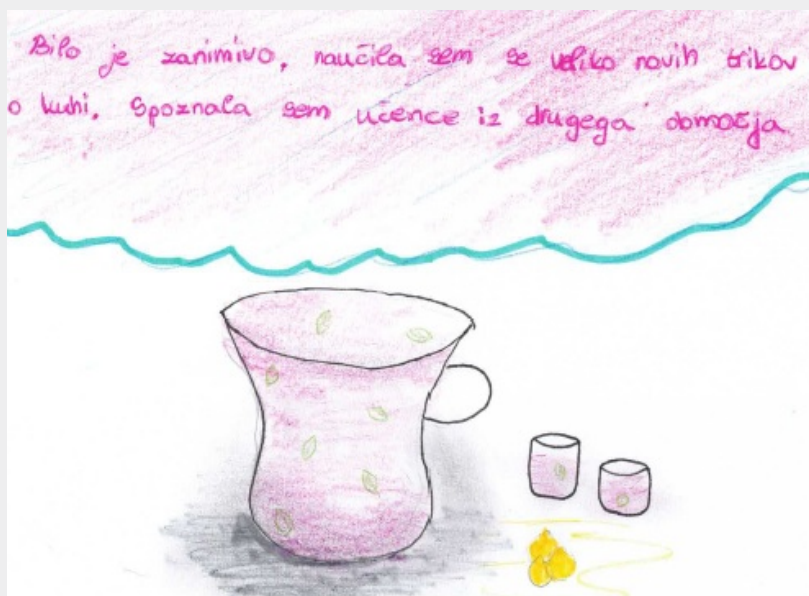 Bilo je zanimivo, naučila sem se veliko novih trikov
o kuhi. Spoznala sem učence iz drugega območja